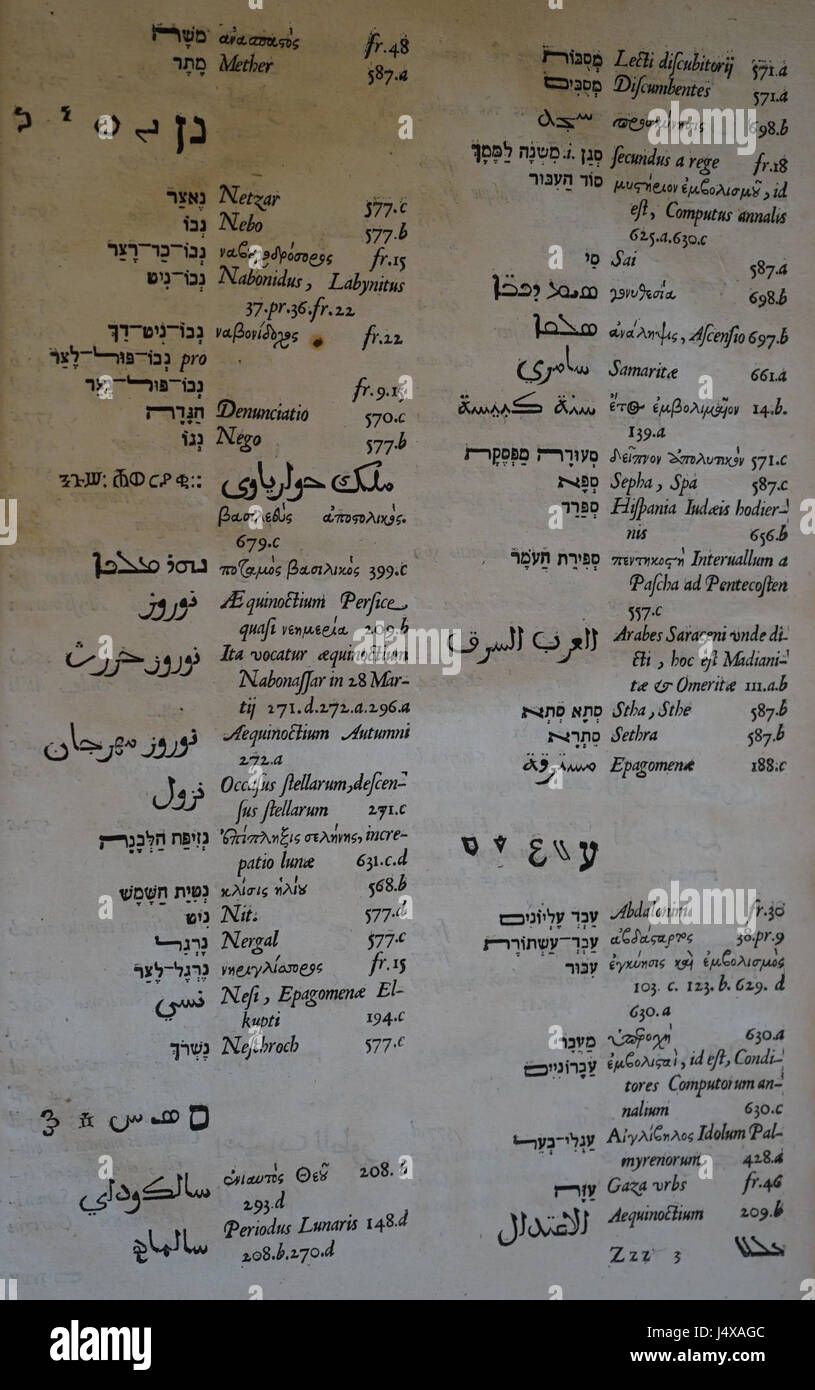 מַשְׁרֶה ἀνάπαυσις fr.48
מֶתֶר Mether 587.a
נן
נֶאְצַר Netzar 577.c
נְבוֹ Nebo 577.b
נְבוֹ־כַד־רֶצַּר fr.15
נְבוֹ־נִיט Nabonidus, Labynitus
37.pr.36.fr.22
נְבוֹ־נִיט־דַךְ ναβονίδοχος fr.22
נְבוֹ־פּוּל־לָצַר pro
נְבוֹ־פּוּל־צַר fr.9.15
הַגָּדָה Denunciatio 570.c
נְגוֹ Nego 577.b
ملك حوارياوى
βασιλεὺς ἀποσολικός.
679.c
ποταμὸς βασιλικὸς 399.c
نوروز Æquinoctium Persice,
quasi νεημερία 209.b
نوروز Ita vocatur æquinoctium
Nabonassar in 28 Mar-
tij 271.d.272.a.296.a
نوروز مهرجان Aequinoctium Autumni
272.a
نزول Occasus stellarum, descen-
sus stellarum 271.c
נְזִיפַת הַלְּבָנָה ἐπίπληξις σελήνης, incre-
patio lunæ 631.c.d
נְטִיַּת הַשֶּׁמֶשׁ κλίσις ἡλίου 568.b
נִיט Nit. 577.d
נֵרְגַל Nergal 577.c
נֶרְגַל־לָצַר fr.15
نسي Nesi, Epagomenæ El-
kupti 194.c
נֶשְׂרֹךְ Neschroch 577.c
ס
سالكوداي ἐνιαυτὸς Θεοῦ 208.b
293.d
سالماه Periodus Lunaris 148.d
208.b.270.d
מְסִבּוֹת Lecti discubitorij 571.a
מְסֻבִּים Discumbentes 571.a
698.b
סְגַן .i. מִשְׁנֶה לַמֶּלֶךְ secundus a rege fr.18
סוֹד הָעִבּוּר μυστήριον ἐμβολισμοῦ, id
est, Computus annalis
625.a.630.c
סַי Sai 587.a
γενυθεσία 698.b
ἀνάληψις, Ascensio 697.b
سامري Samaritæ 661.a
ἔτος ἐμβολιμαῖον 14.b.
139.a
סְעוּדָה מַפְסֶקֶת δεῖπνον ἀπολυτικόν 571.c
סְפָא Sepha, Spa 587.c
סְפָרַד Hispania Iudæis hodier-
nis 656.b
סְפִירַת הָעֹמֶר πεντηκοστὴ Interuallum a
Pascha ad Pentecosten
557.c
العرب السرق Arabes Saraceni vnde di-
cti, hoc est Madiani-
tæ & Omeritæ 111.a.b
סְתָא סְתֵא Stha, Sthe 587.b
סִתְרָא Sethra 587.b
مسترقة Epagomenæ 188.c
ע
עֶבֶד עֶלְיוֹנִים Abdalonimi fr.30
עֶבֶד־עַשְׁתּוֹרֶת ἀβδάςαρτος 38.pr.9
עִבּוּר ἐγκύησις καὶ ἐμβολισμὸς
103. c. 123. b. 629. d
630.a
מְעֻבָּר 630.a
עַבְרוֹנִיִּים ἐμβολισταὶ, id est, Condi-
tores Computorum an-
nalium 630.c
עֶגְלִי־בַּעַל Αἰγλίβηλος Idolum Pal-
myrenorum 428.a
עַזָּה Gaza vrbs fr.46
الاعتدال Aequinoctium 209.b
Zzz 3
alamy
Image ID: J4XAGC
www.alamy.com